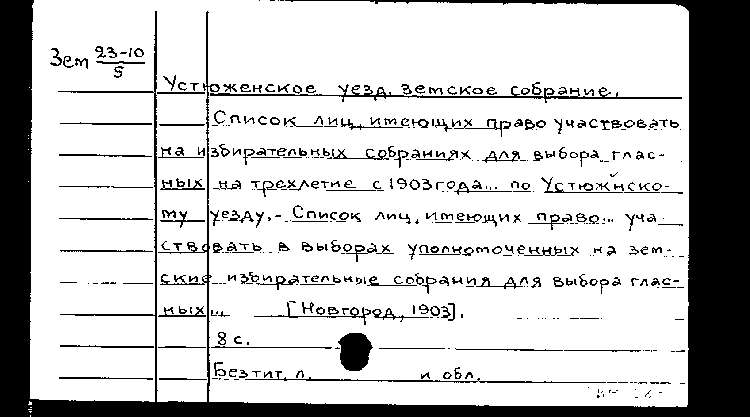 Зем 23-10/5
Устюженское уезд. земское собрание.
Список лиц, имеющих право участвовать
на избирательных собраниях для выбора глас-
ных на трехлетие с 1903 года... по Устюжнско-
му уезду.- Список лиц, имеющих право... уча-
ствовать в выборах уполномоченных на зем-
ские избирательные собрания для выбора глас-
ных... [Новгород, 1903].
8 с.
Без тит. л. и обл.